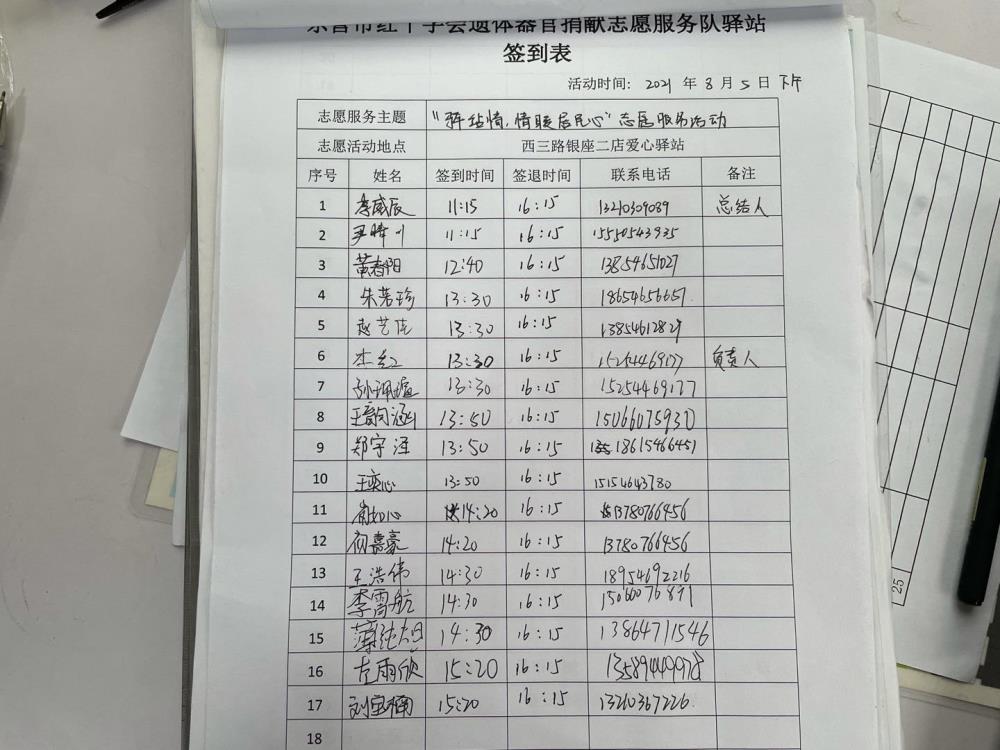 东营市红十字会遗体器官捐献志愿服务队驿站
签到表
活动时间: 2021 年 8 月 5 日 下午
志愿服务主题 "驿站情,情暖居民心"志愿服务活动
志愿活动地点 西三路银座二店爱心驿站
序号 姓名 签到时间 签退时间 联系电话 备注
1 李威辰 11:15 16:15 13210309089 总结人
2 11:15 16:15 15550543935
3 黄春阳 12:40 16:15 13854651027
4 朱若珍 13:30 16:15 18654656657
5 赵艺佳 13:30 16:15 13854612829
6 13:30 16:15 15254469177 负责人
7 13:30 16:15 15254469177
8 王韵涵 13:50 16:15 15066075930
9 郑宇泽 13:50 16:15 18615466451
10 王奕心 13:50 16:15 15154643780
11 14:20 16:15 13780766456
12 14:20 16:15 13780766456
13 王浩伟 14:30 16:15 18954692216
14 李霄航 14:30 16:15 15066076871
15 14:30 16:15 13864711546
16 左雨欣 15:20 16:15 13589449978
17 刘宝楠 15:20 16:15 13210367226
18
25